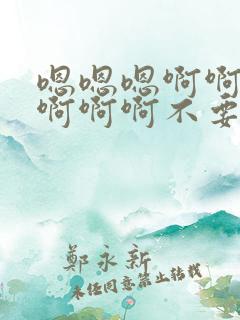 嗯嗯嗯啊啊
啊啊啊不要
鄭永新
未经同意禁止转载